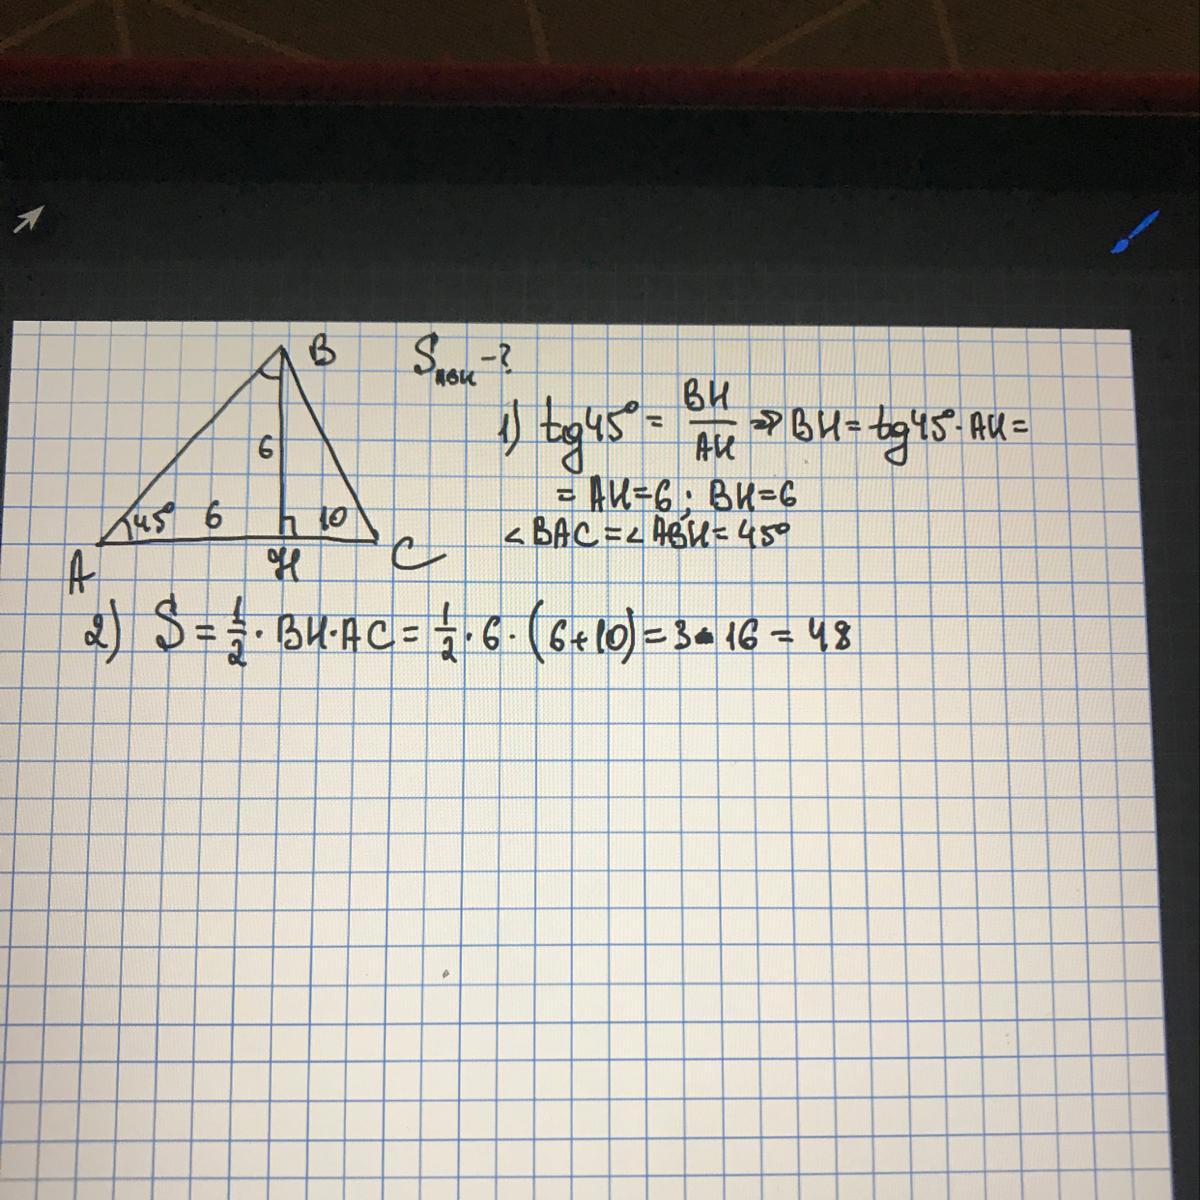 B
6
45° 6 10
A H C
S_ABH - ?
1) tg45° = BH/AH => BH = tg45° · AH =
= AH = 6; BH = 6
∠BAC = ∠ABH = 45°
2) S = 1/2 · BH · AC = 1/2 · 6 · (6+10) = 3 · 16 = 48